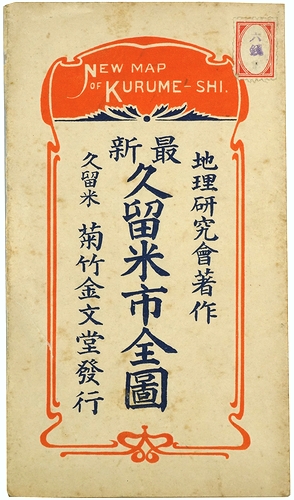 NEW MAP
OF KURUME-SHI.
六銭
地理研究會著作
最新
久留米市全圖
久留米 菊竹金文堂發行